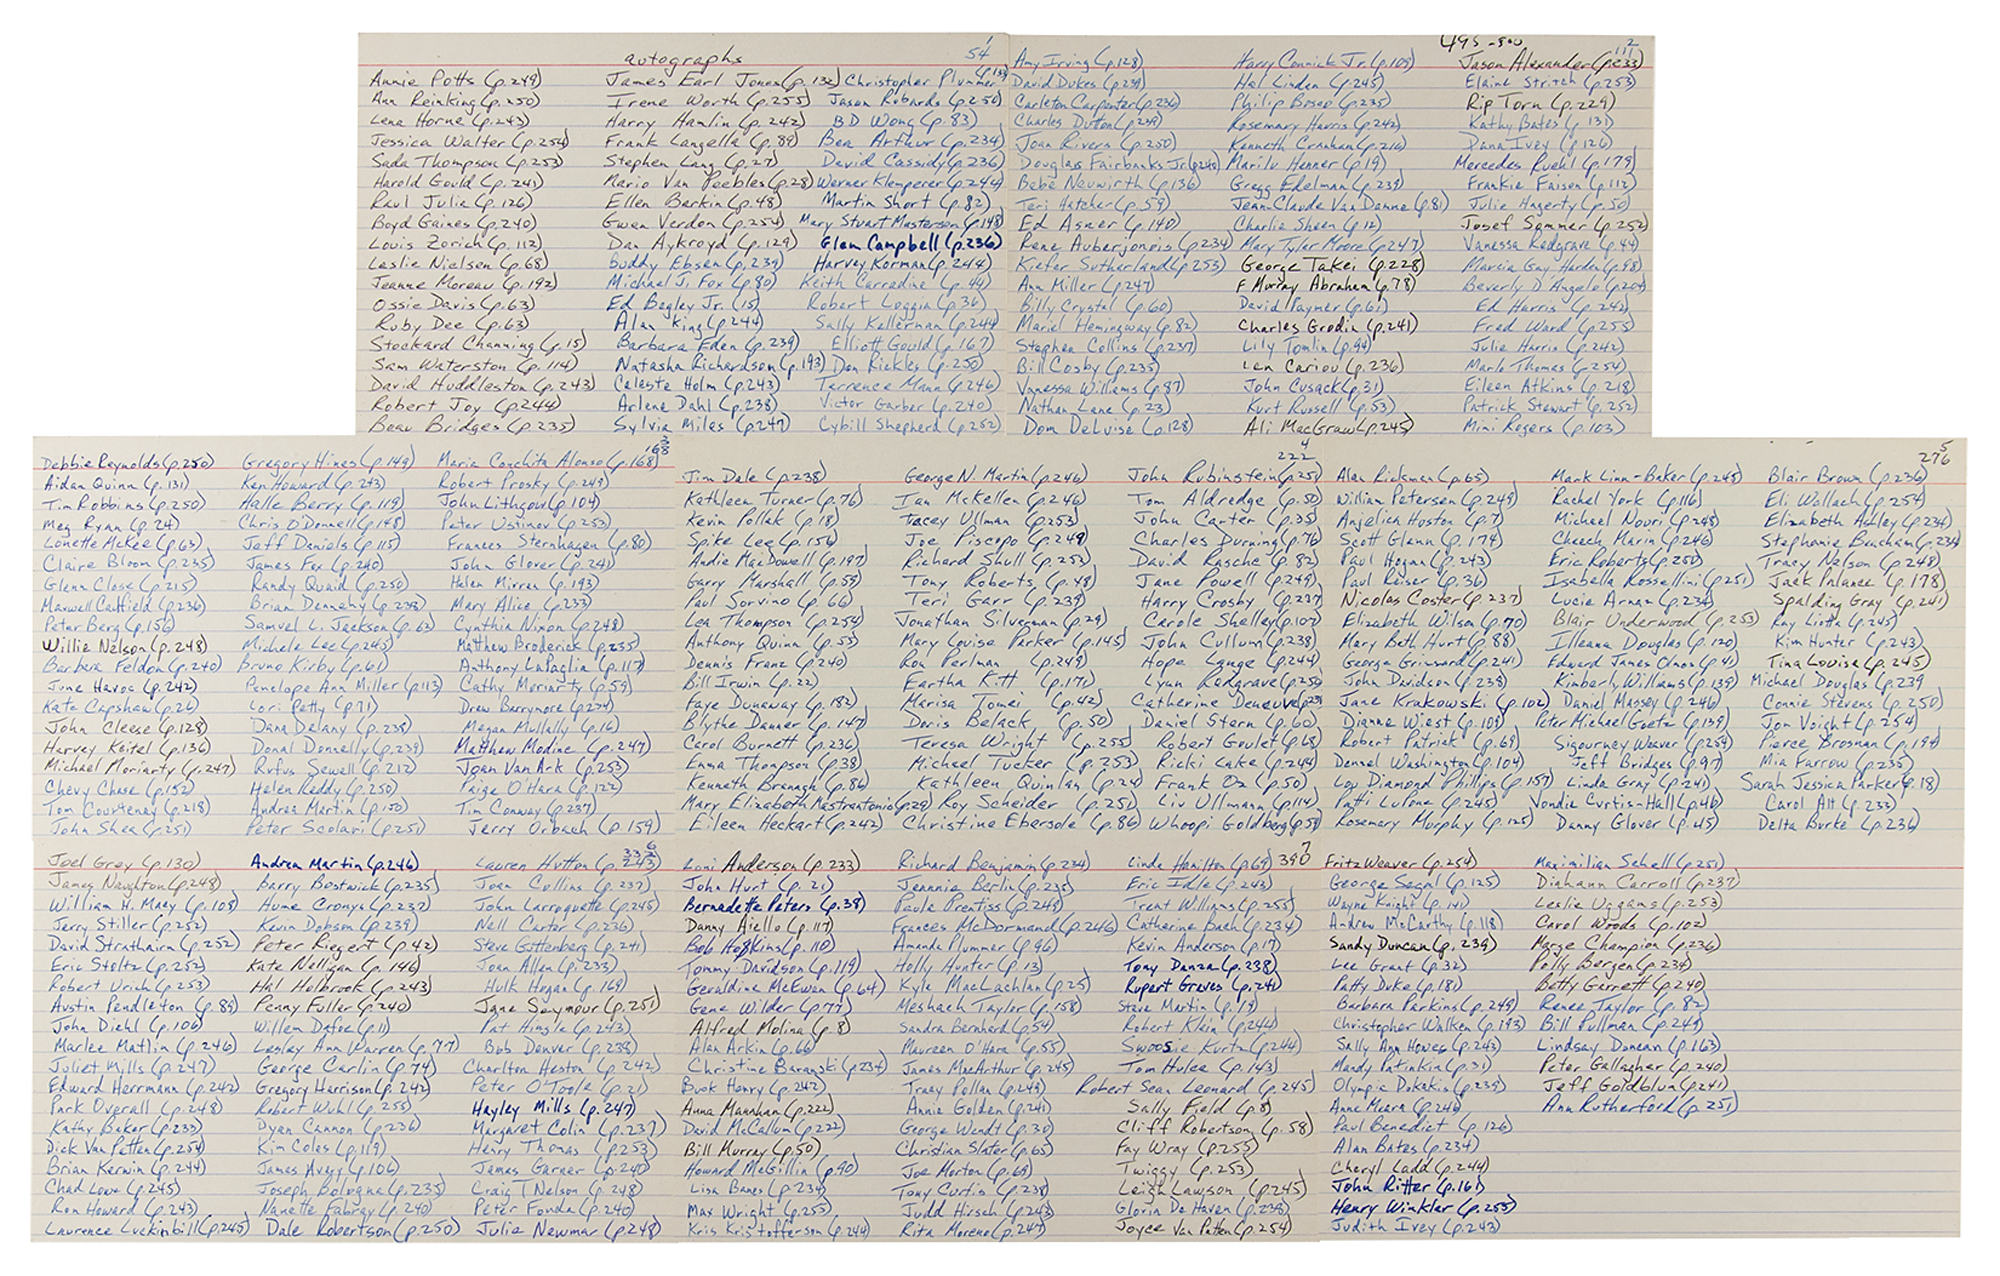 autographs 1 54
Annie Potts (p.249) James Earl Jones (p.132) Christopher Plummer (p.133)
Ann Reinking (p.250) Irene Worth (p.255) Jason Robards (p.250)
Lena Horne (p.243) Harry Hamlin (p.242) BD Wong (p.83)
Jessica Walter (p.254) Frank Langella (p.89) Bea Arthur (p.234)
Sada Thompson (p.253) Stephen Lang (p.27) David Cassidy (p.236)
Harold Gould (p.241) Mario Van Peebles (p.28) Werner Klemperer (p.244)
Raul Julia (p.126) Ellen Barkin (p.48) Martin Short (p.82)
Boyd Gaines (p.240) Gwen Verdon (p.254) Mary Stuart Masterson (p.148)
Louis Zorich (p.112) Dan Aykroyd (p.129) Glen Campbell (p.236)
Leslie Nielsen (p.68) Buddy Ebsen (p.239) Harvey Korman (p.244)
Jeanne Moreau (p.192) Michael J. Fox (p.80) Keith Carradine (p.44)
Ossie Davis (p.63) Ed Begley Jr. (15) Robert Loggia (p.36)
Ruby Dee (p.63) Alan King (p.244) Sally Kellerman (p.244)
Stockard Channing (p.15) Barbara Eden (p.239) Elliott Gould (p.167)
Sam Waterston (p.114) Natasha Richardson (p.193) Don Rickles (p.250)
David Huddleston (p.243) Celeste Holm (p.243) Terrence Mann (p.246)
Robert Joy (p.244) Arlene Dahl (p.238) Victor Garber (p.240)
Beau Bridges (p.235) Sylvia Miles (p.247) Cybill Shepherd (p.252)
495-500 2 111
Amy Irving (p.128) Harry Connick Jr. (p.109) Jason Alexander (p.233)
David Dukes (p.239) Hal Linden (p.245) Elaine Stritch (p.253)
Carleton Carpenter (p.236) Philip Bosco (p.235) Rip Torn (p.229)
Charles Dutton (p.239) Rosemary Harris (p.242) Kathy Bates (p.131)
Joan Rivers (p.250) Kenneth Cranham (p.216) Dana Ivey (p.126)
Douglas Fairbanks Jr. (p.240) Marilu Henner (p.19) Mercedes Ruehl (p.179)
Bebe Neuwirth (p.136) Gregg Edelman (p.239) Frankie Faison (p.112)
Teri Hatcher (p.59) Jean-Claude Van Damme (p.81) Julie Hagerty (p.50)
Ed Asner (p.140) Charlie Sheen (p.12) Josef Sommer (p.252)
Rene Auberjonois (p.234) Mary Tyler Moore (p.247) Vanessa Redgrave (p.44)
Kiefer Sutherland (p.253) George Takei (p.228) Marcia Gay Harden (p.98)
Ann Miller (p.247) F Murray Abraham (p.78) Beverly D'Angelo (p.204)
Billy Crystal (p.60) David Paymer (p.61) Ed Harris (p.242)
Mariel Hemingway (p.82) Charles Grodin (p.241) Fred Ward (p.255)
Stephen Collins (p.237) Lily Tomlin (p.94) Julie Harris (p.242)
Bill Cosby (p.235) Len Cariou (p.236) Marlo Thomas (p.254)
Vanessa Williams (p.87) John Cusack (p.31) Eileen Atkins (p.218)
Nathan Lane (p.23) Kurt Russell (p.53) Patrick Stewart (p.252)
Dom DeLuise (p.128) Ali MacGraw (p.245) Mimi Rogers (p.103)
3 168
Debbie Reynolds (p.250) Gregory Hines (p.149) Maria Conchita Alonso (p.168)
Aidan Quinn (p.131) Ken Howard (p.243) Robert Prosky (p.249)
Tim Robbins (p.250) Halle Berry (p.119) John Lithgow (p.104)
Meg Ryan (p.24) Chris O'Donnell (p.148) Peter Ustinov (p.253)
Lonette McKee (p.63) Jeff Daniels (p.115) Frances Sternhagen (p.80)
Claire Bloom (p.235) James Fox (p.240) John Glover (p.241)
Glenn Close (p.215) Randy Quaid (p.250) Helen Mirren (p.193)
Maxwell Caulfield (p.236) Brian Dennehy (p.238) Mary Alice (p.233)
Peter Berg (p.156) Samuel L. Jackson (p.62) Cynthia Nixon (p.248)
Willie Nelson (p.248) Michele Lee (p.245) Matthew Broderick (p.235)
Barbara Feldon (p.240) Bruno Kirby (p.61) Anthony LaPaglia (p.117)
June Havoc (p.242) Penelope Ann Miller (p.113) Cathy Moriarty (p.59)
Kate Capshaw (p.26) Lori Petty (p.71) Drew Barrymore (p.234)
John Cleese (p.128) Dana Delany (p.238) Megan Mullally (p.16)
Harvey Keitel (p.136) Donal Donnelly (p.239) Matthew Modine (p.247)
Michael Moriarty (p.247) Rufus Sewell (p.212) Joan Van Ark (p.253)
Chevy Chase (p.152) Helen Reddy (p.250) Paige O'Hara (p.122)
Tom Courtenay (p.218) Andrea Martin (p.150) Tim Conway (p.237)
John Shea (p.251) Peter Scolari (p.251) Jerry Orbach (p.159)
4 222
Jim Dale (p.238) George N. Martin (p.246) John Rubinstein (p.25)
Kathleen Turner (p.76) Ian McKellen (p.246) Tom Aldredge (p.50)
Kevin Pollak (p.18) Tracey Ullman (p.253) John Carter (p.35)
Spike Lee (p.156) Joe Piscopo (p.249) Charles Durning (p.76)
Andie MacDowell (p.197) Richard Shull (p.253) David Rasche (p.82)
Garry Marshall (p.59) Tony Roberts (p.48) Jane Powell (p.249)
Paul Sorvino (p.66) Teri Garr (p.239) Harry Crosby (p.237)
Lea Thompson (p.254) Jonathan Silverman (p.29) Carole Shelley (p.107)
Anthony Quinn (p.53) Mary Louise Parker (p.145) John Cullum (p.238)
Dennis Franz (p.240) Ron Perlman (p.249) Hope Lange (p.244)
Bill Irwin (p.22) Eartha Kitt (p.171) Lynn Redgrave (p.250)
Faye Dunaway (p.182) Marisa Tomei (p.42) Catherine Deneuve (p.239)
Blythe Danner (p.147) Doris Belack (p.50) Daniel Stern (p.60)
Carol Burnett (p.236) Teresa Wright (p.255) Robert Goulet (p.68)
Emma Thompson (p.38) Michael Tucker (p.253) Ricki Lake (p.244)
Kenneth Branagh (p.86) Kathleen Quinlan (p.24) Frank Oz (p.50)
Mary Elizabeth Mastrantonio (p.29) Roy Scheider (p.251) Liv Ullmann (p.114)
Eileen Heckart (p.242) Christine Ebersole (p.86) Whoopi Goldberg (p.59)
5 276
Alan Rickman (p.65) Mark Linn-Baker (p.245) Blair Brown (p.236)
William Petersen (p.249) Rachel York (p.116) Eli Wallach (p.254)
Anjelica Huston (p.7) Michael Nouri (p.248) Elizabeth Ashley (p.234)
Scott Glenn (p.174) Cheech Marin (p.246) Stephanie Beacham (p.234)
Paul Hogan (p.243) Eric Roberts (p.250) Tracy Nelson (p.248)
Paul Reiser (p.36) Isabella Rossellini (p.251) Jack Palance (p.178)
Nicolas Coster (p.237) Lucie Arnaz (p.234) Spalding Gray (p.241)
Elizabeth Wilson (p.70) Blair Underwood (p.253) Ray Liotta (p.245)
Mary Beth Hurt (p.88) Illeana Douglas (p.120) Kim Hunter (p.243)
George Grizzard (p.241) Edward James Olmos (p.41) Tina Louise (p.245)
John Davidson (p.238) Kimberly Williams (p.139) Michael Douglas (p.239
Jane Krakowski (p.102) Daniel Massey (p.246) Connie Stevens (p.250)
Dianne Wiest (p.109) Peter Michael Goetz (p.159) Jon Voight (p.254)
Robert Patrick (p.69) Sigourney Weaver (p.254) Pierce Brosnan (p.194)
Denzel Washington (p.104) Jeff Bridges (p.97) Mia Farrow (p.235)
Lou Diamond Phillips (p.157) Linda Gray (p.241) Sarah Jessica Parker (p.18)
Patti LuPone (p.245) Vondie Curtis-Hall (p.46) Carol Alt (p.233)
Rosemary Murphy (p.125) Danny Glover (p.45) Delta Burke (p.236)
6 333
Joel Grey (p.130) Andrea Martin (p.246) Lauren Hutton (p.243)
James Naughton (p.248) Barry Bostwick (p.235) Joan Collins (p.237)
William H. Macy (p.108) Hume Cronyn (p.237) John Larroquette (p.245)
Jerry Stiller (p.252) Kevin Dobson (p.239) Nell Carter (p.236)
David Strathairn (p.252) Peter Riegert (p.42) Steve Guttenberg (p.241)
Eric Stoltz (p.252) Kate Nelligan (p.146) Joan Allen (p.233)
Robert Urich (p.253) Hal Holbrook (p.243) Hulk Hogan (p.169)
Austin Pendleton (p.89) Penny Fuller (p.240) Jane Seymour (p.251)
John Diehl (p.106) Willem Dafoe (p.11) Pat Hingle (p.243)
Marlee Matlin (p.246) Lesley Ann Warren (p.77) Bob Denver (p.238)
Juliet Mills (p.247) George Carlin (p.74) Charlton Heston (p.242)
Edward Herrmann (p.242) Gregory Harrison (p.242) Peter O'Toole (p.21)
Park Overall (p.248) Robert Wuhl (p.255) Hayley Mills (p.247)
Kathy Baker (p.233) Dyan Cannon (p.236) Margaret Colin (p.237)
Dick Van Patten (p.254) Kim Coles (p.119) Henry Thomas (p.253)
Brian Kerwin (p.244) James Avery (p.106) James Garner (p.240)
Chad Lowe (p.245) Joseph Bologna (p.235) Craig T Nelson (p.248)
Ron Howard (p.243) Nanette Fabray (p.240) Peter Fonda (p.240)
Laurence Luckinbill (p.245) Dale Robertson (p.250) Julie Newmar (p.248)
7 390
Loni Anderson (p.233) Richard Benjamin (p.234) Linda Hamilton (p.69)
John Hurt (p.21) Jeannie Berlin (p.235) Eric Idle (p.243)
Bernadette Peters (p.38) Paula Prentiss (p.249) Treat Williams (p.255)
Danny Aiello (p.117) Frances McDormand (p.246) Catherine Bach (p.234)
Bob Hoskins (p.110) Amanda Plummer (p.96) Kevin Anderson (p.17)
Tommy Davidson (p.119) Holly Hunter (p.13) Tony Danza (p.238)
Geraldine McEwan (p.64) Kyle MacLachlan (p.25) Rupert Graves (p.241)
Gene Wilder (p.77) Meshach Taylor (p.158) Steve Martin (p.19)
Alfred Molina (p.8) Sandra Bernhard (p.54) Robert Klein (p.244)
Alan Arkin (p.66) Maureen O'Hara (p.55) Swoosie Kurtz (p.244)
Christine Baranski (p.234) James MacArthur (p.245) Tom Hulce (p.143)
Buck Henry (p.242) Tracy Pollan (p.249) Robert Sean Leonard (p.245)
Anna Manahan (p.222) Annie Golden (p.241) Sally Field (p.5)
David McCallum (p.222) George Wendt (p.30) Cliff Robertson (p.58)
Bill Murray (p.50) Christian Slater (p.65) Fay Wray (p.255)
Howard McGillin (p.90) Joe Morton (p.69) Twiggy (p.253)
Lisa Banes (p.234) Tony Curtis (p.238) Leigh Lawson (p.245)
Max Wright (p.255) Judd Hirsch (p.243) Gloria De Haven (p.238)
Kris Kristofferson (p.244) Rita Moreno (p.247) Joyce Van Patten (p.254)
Fritz Weaver (p.254) Maximilian Schell (p.251)
George Segal (p.125) Diahann Carroll (p.237)
Wayne Knight (p.141) Leslie Uggams (p.253)
Andrew McCarthy (p.118) Carol Woods (p.102)
Sandy Duncan (p.239) Marge Champion (p.236)
Lee Grant (p.32) Polly Bergen (p.234)
Patty Duke (p.181) Betty Garrett (p.240)
Barbara Parkins (p.249) Renee Taylor (p.82)
Christopher Walken (p.193) Bill Pullman (p.249)
Sally Ann Howes (p.243) Lindsay Duncan (p.163)
Mandy Patinkin (p.31) Peter Gallagher (p.240)
Olympia Dukakis (p.239) Jeff Goldblum (p.241)
Anne Meara (p.246) Ann Rutherford (p.251)
Paul Benedict (p.126)
Alan Bates (p.234)
Cheryl Ladd (p.244)
John Ritter (p.161)
Henry Winkler (p.255)
Judith Ivey (p.243)